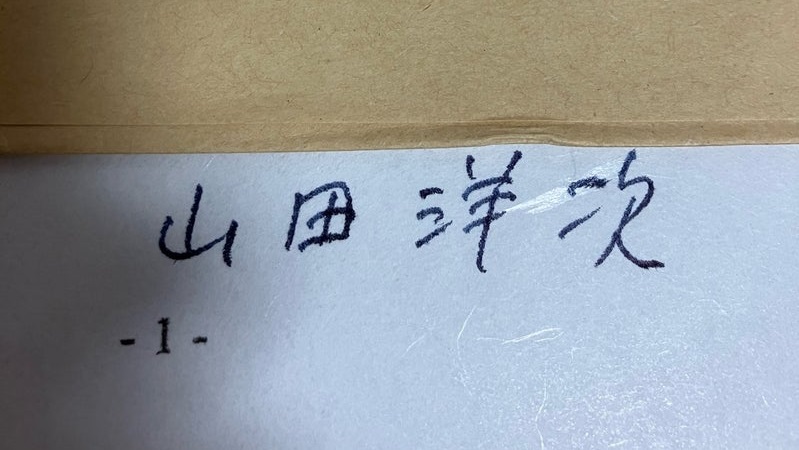 山田洋次
- 1 -